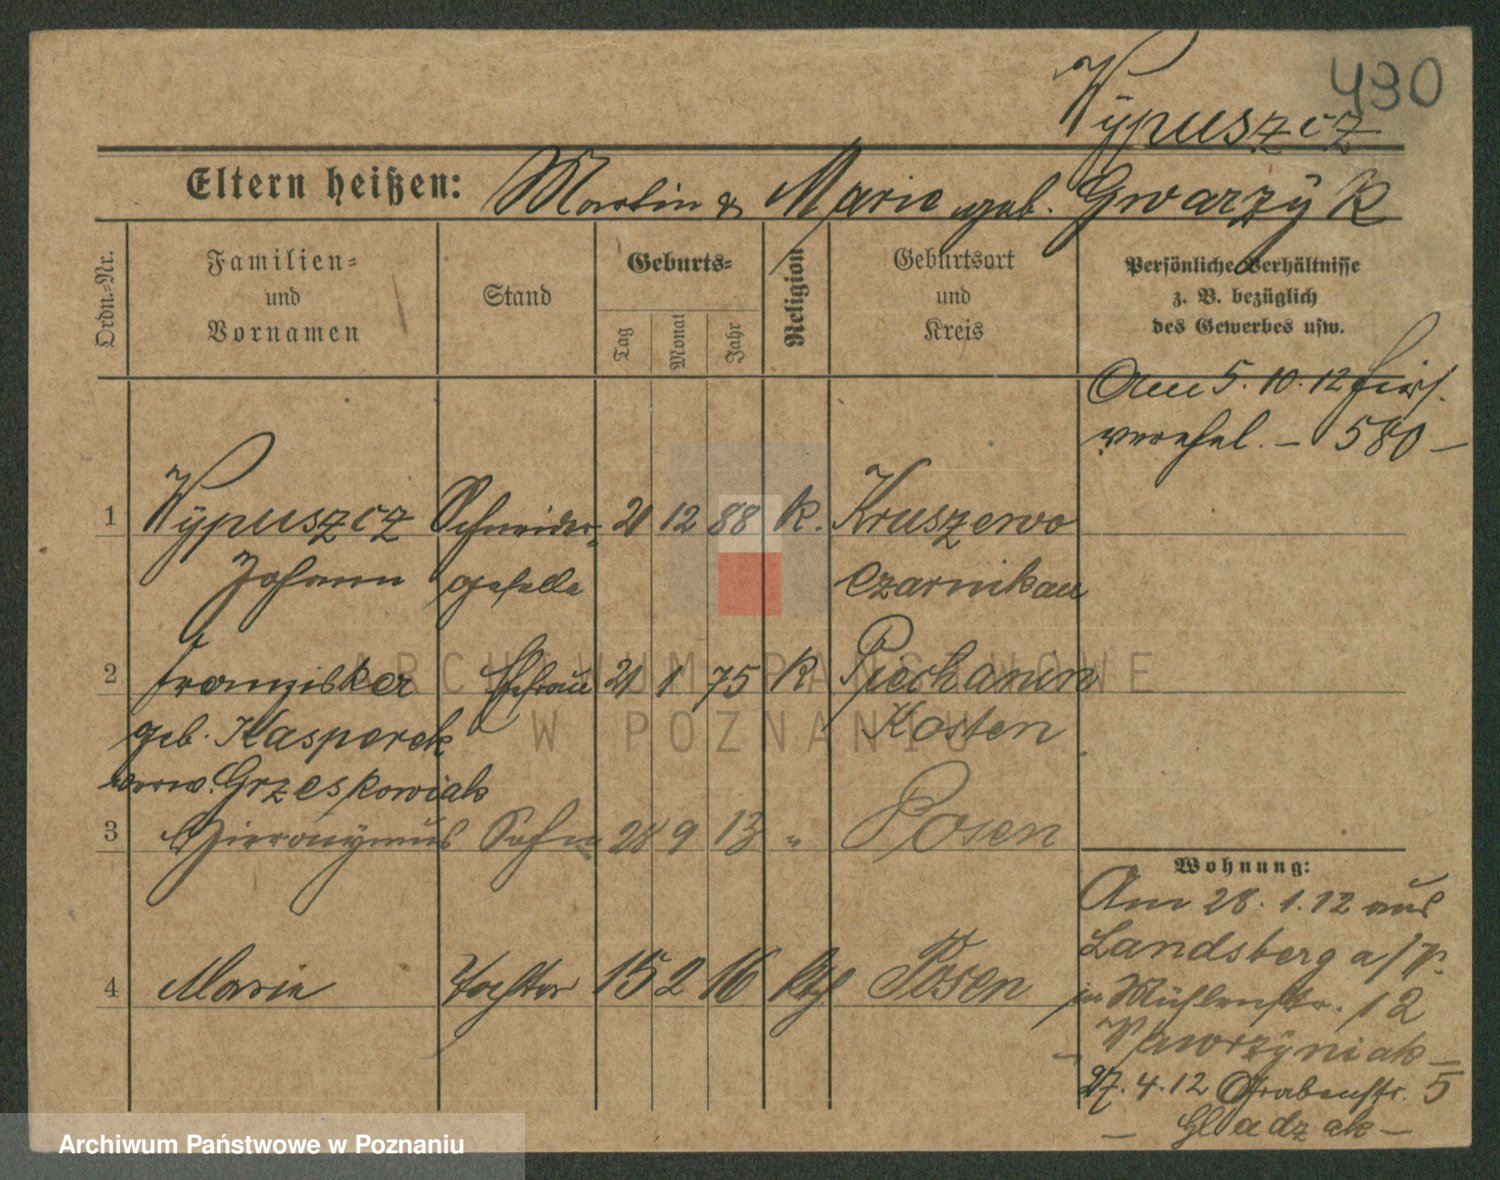 430
Wÿpuszcz
Eltern heißen: Martin & Marie geb. Gwarzÿk
Ordn.-Nr.
Familien- und Vornamen
Stand
Geburts-
Tag
Monat
Jahr
Religion
Geburtsort und Kreis
Persönliche Verhältnisse
z. B. bezüglich
des Gewerbes usw.
Am 5. 10. 12 hier
verehel. – 580 –
1 Wÿpuszcz Schneider- 21 12 88 K. Kruszewo
Johann geselle Czarnikau
2 Franziska Ehefrau 21 1 75 K Piechanin
geb. Kasperek Kosten
verw. Grzeskowiak
3 Hieronÿmus Sohn 28 9 13 " Posen
4 Marie Tochter 15 2 16 kth Posen
Wohnung:
Am 28. 1. 12 aus
Landsberg a/
in Mühlenstr. 12
– Wawrzÿniak –
27. 4. 12 Grabenstr. 5
– Gladzak –
ARCHIWUM PAŃSTWOWE
W POZNANIU
Archiwum Państwowe w Poznaniu